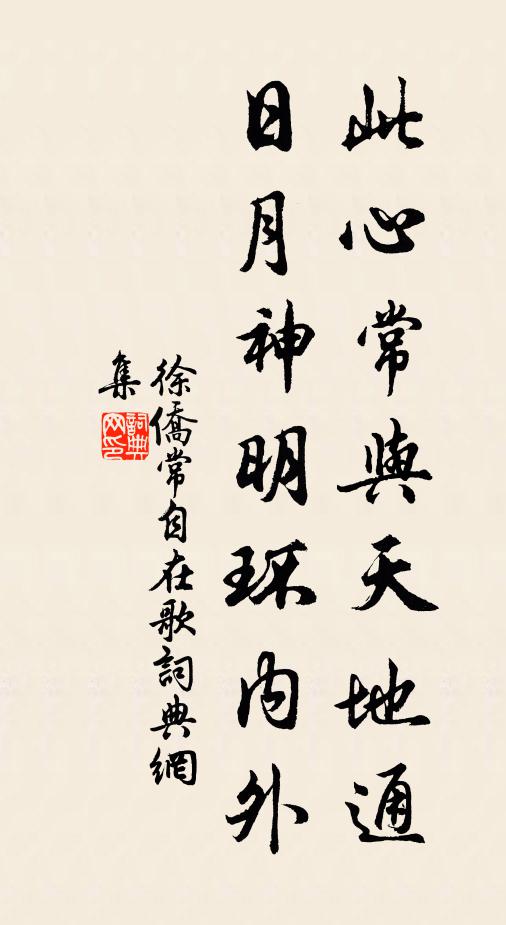 此心常與天地通
日月神明环内外
徐僑常自在歌詞典網
集
詞典
网印